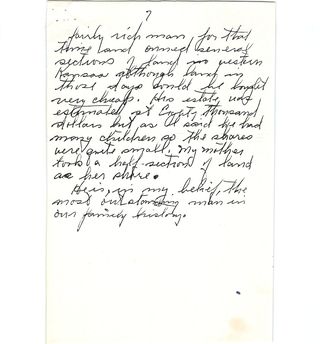 7
fairly rich man, for that
time and owned several
sections of land in western
Kansas although land in
those days could be bought
very cheap. His estate was
estimated at Eighty thousand
dollars but as I said he had
many children so the shares
were quite small. My mother
took a half section of land
as her share.
He is, in my belief, the
most outstanding man in
our family history.